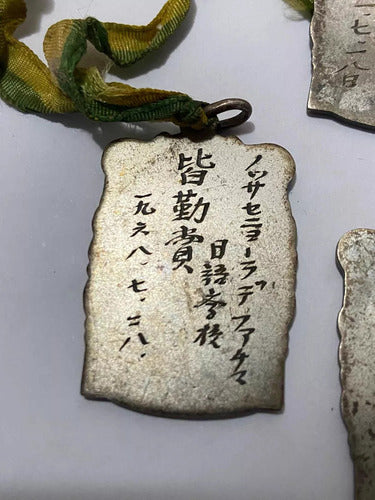 ノッサセニョーラデファチマ
日語学校
皆勤賞
一九六八、七、二八、
七、二八日